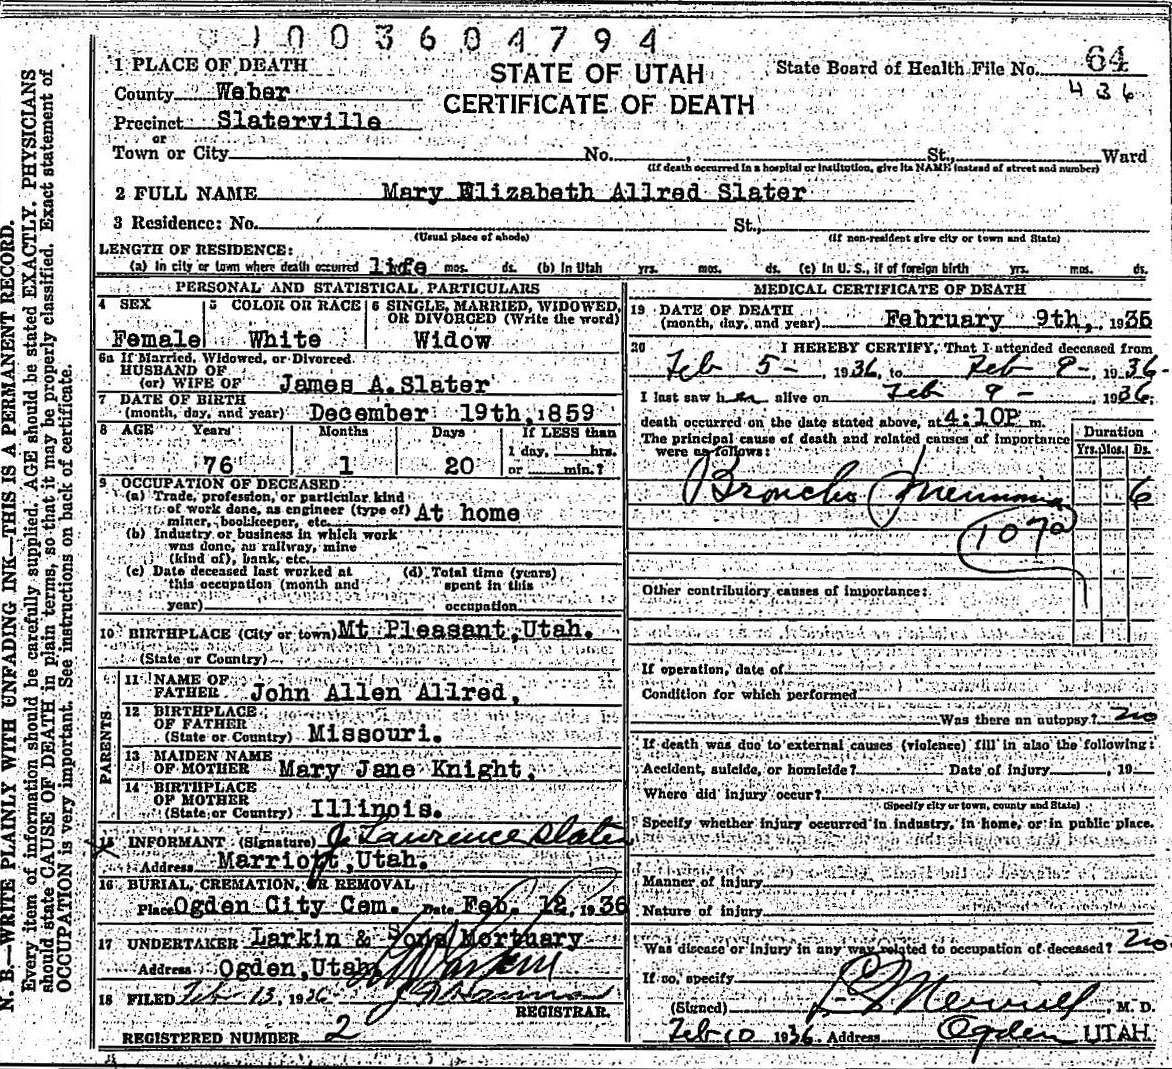 1003604794
STATE OF UTAH
CERTIFICATE OF DEATH
State Board of Health File No. 64
436
1 PLACE OF DEATH
County Weber
Precinct Slaterville
or
Town or City No. , St., Ward
(If death occurred in a hospital or institution, give its NAME instead of street and number)
2 FULL NAME Mary Elizabeth Allred Slater
3 Residence: No. St.,
(Usual place of abode) (If non-resident give city or town and State)
LENGTH OF RESIDENCE:
(a) In city or town where death occurred life mos. ds. (b) In Utah yrs. mos. ds. (c) In U. S., if of foreign birth yrs. mos. ds.
PERSONAL AND STATISTICAL PARTICULARS
4 SEX 5 COLOR OR RACE 6 SINGLE, MARRIED, WIDOWED, OR DIVORCED (Write the word)
Female White Widow
6a If Married, Widowed, or Divorced
HUSBAND OF
(or) WIFE OF James A.Slater
7 DATE OF BIRTH
(month, day, and year) December 19th, 1859
8 AGE Years Months Days If LESS than
1 day, hrs.
76 1 20 or min.?
9 OCCUPATION OF DECEASED
(a) Trade, profession, or particular kind
of work done, as engineer (type of) At home
miner, bookkeeper, etc.
(b) Industry or business in which work
was done, as railway, mine
(kind of), bank, etc.
(c) Date deceased last worked at (d) Total time (years)
this occupation (month and spent in this
year) occupation
10 BIRTHPLACE (City or town) Mt Pleasant, Utah.
(State or Country)
PARENTS
11 NAME OF
FATHER John Allen Allred,
12 BIRTHPLACE
OF FATHER
(State or Country) Missouri.
13 MAIDEN NAME
OF MOTHER Mary Jane Knight.
14 BIRTHPLACE
OF MOTHER
(State or Country) Illinois.
15 INFORMANT (Signature) J Lawrence Slater
Address Marriott, Utah.
16 BURIAL, CREMATION, OR REMOVAL
Place Ogden City Cem. Date Feb. 12, 1936
17 UNDERTAKER Larkin & Sons Mortuary
Address Ogden, Utah
18 FILED Feb 13, 1936
REGISTRAR.
REGISTERED NUMBER 2
MEDICAL CERTIFICATE OF DEATH
19 DATE OF DEATH
(month, day, and year) February 9th, 1936
20 I HEREBY CERTIFY, That I attended deceased from
Feb 5 - , 1936, to Feb 9 - , 1936-
I last saw her alive on Feb 9 - 1936;
death occurred on the date stated above, at 4:10P m.
The principal cause of death and related causes of importance
were as follows: Duration
Yrs. Mos. Ds.
Broncho Pneumonia 6
107a
Other contributory causes of importance:
If operation, date of
Condition for which performed
Was there an autopsy? no
If death was due to external causes (violence) fill in also the following:
Accident, suicide, or homicide? Date of injury , 19
Where did injury occur?
(Specify city or town, county and State)
Specify whether injury occurred in industry, in home, or in public place.
Manner of injury
Nature of injury
Was disease or injury in any way related to occupation of deceased? no
If so, specify
(Signed) Merrill M. D.
Feb 10 1936 Address Ogden UTAH.
N. B.—WRITE PLAINLY WITH UNFADING INK—THIS IS A PERMANENT RECORD.
Every item of information should be carefully supplied. AGE should be stated EXACTLY. PHYSICIANS
should state CAUSE OF DEATH in plain terms, so that it may be properly classified. Exact statement of
OCCUPATION is very important. See instructions on back of certificate.